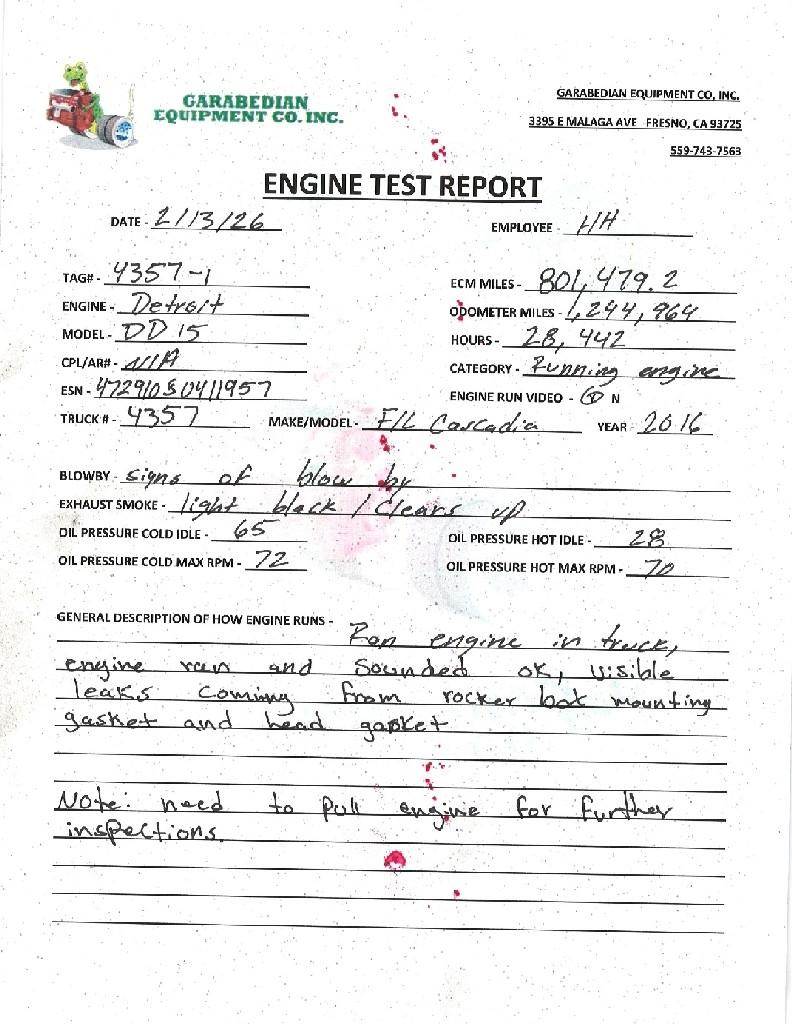 GARABEDIAN
EQUIPMENT CO. INC.
GARABEDIAN EQUIPMENT CO, INC.
3395 E MALAGA AVE FRESNO, CA 93725
559-743-7563
ENGINE TEST REPORT
DATE - 2/13/26 EMPLOYEE - HH
TAG# - 4357-1 ECM MILES - 801,479.2
ENGINE - Detroit ODOMETER MILES - 1,244,964
MODEL - DD15 HOURS - 28,442
CPL/AR# - N/A CATEGORY - Running engine
ESN - 472910S0411957 ENGINE RUN VIDEO - Y N
TRUCK # - 4357 MAKE/MODEL - F/L Cascadia YEAR - 2016
BLOWBY - signs of blow by
EXHAUST SMOKE - light black / Clears up
OIL PRESSURE COLD IDLE - 65 OIL PRESSURE HOT IDLE - 28
OIL PRESSURE COLD MAX RPM - 72 OIL PRESSURE HOT MAX RPM - 70
GENERAL DESCRIPTION OF HOW ENGINE RUNS - Ran engine in truck,
engine ran and sounded ok, visible
leaks coming from rocker box mounting
gasket and head gasket
Note: need to pull engine for further
inspections.